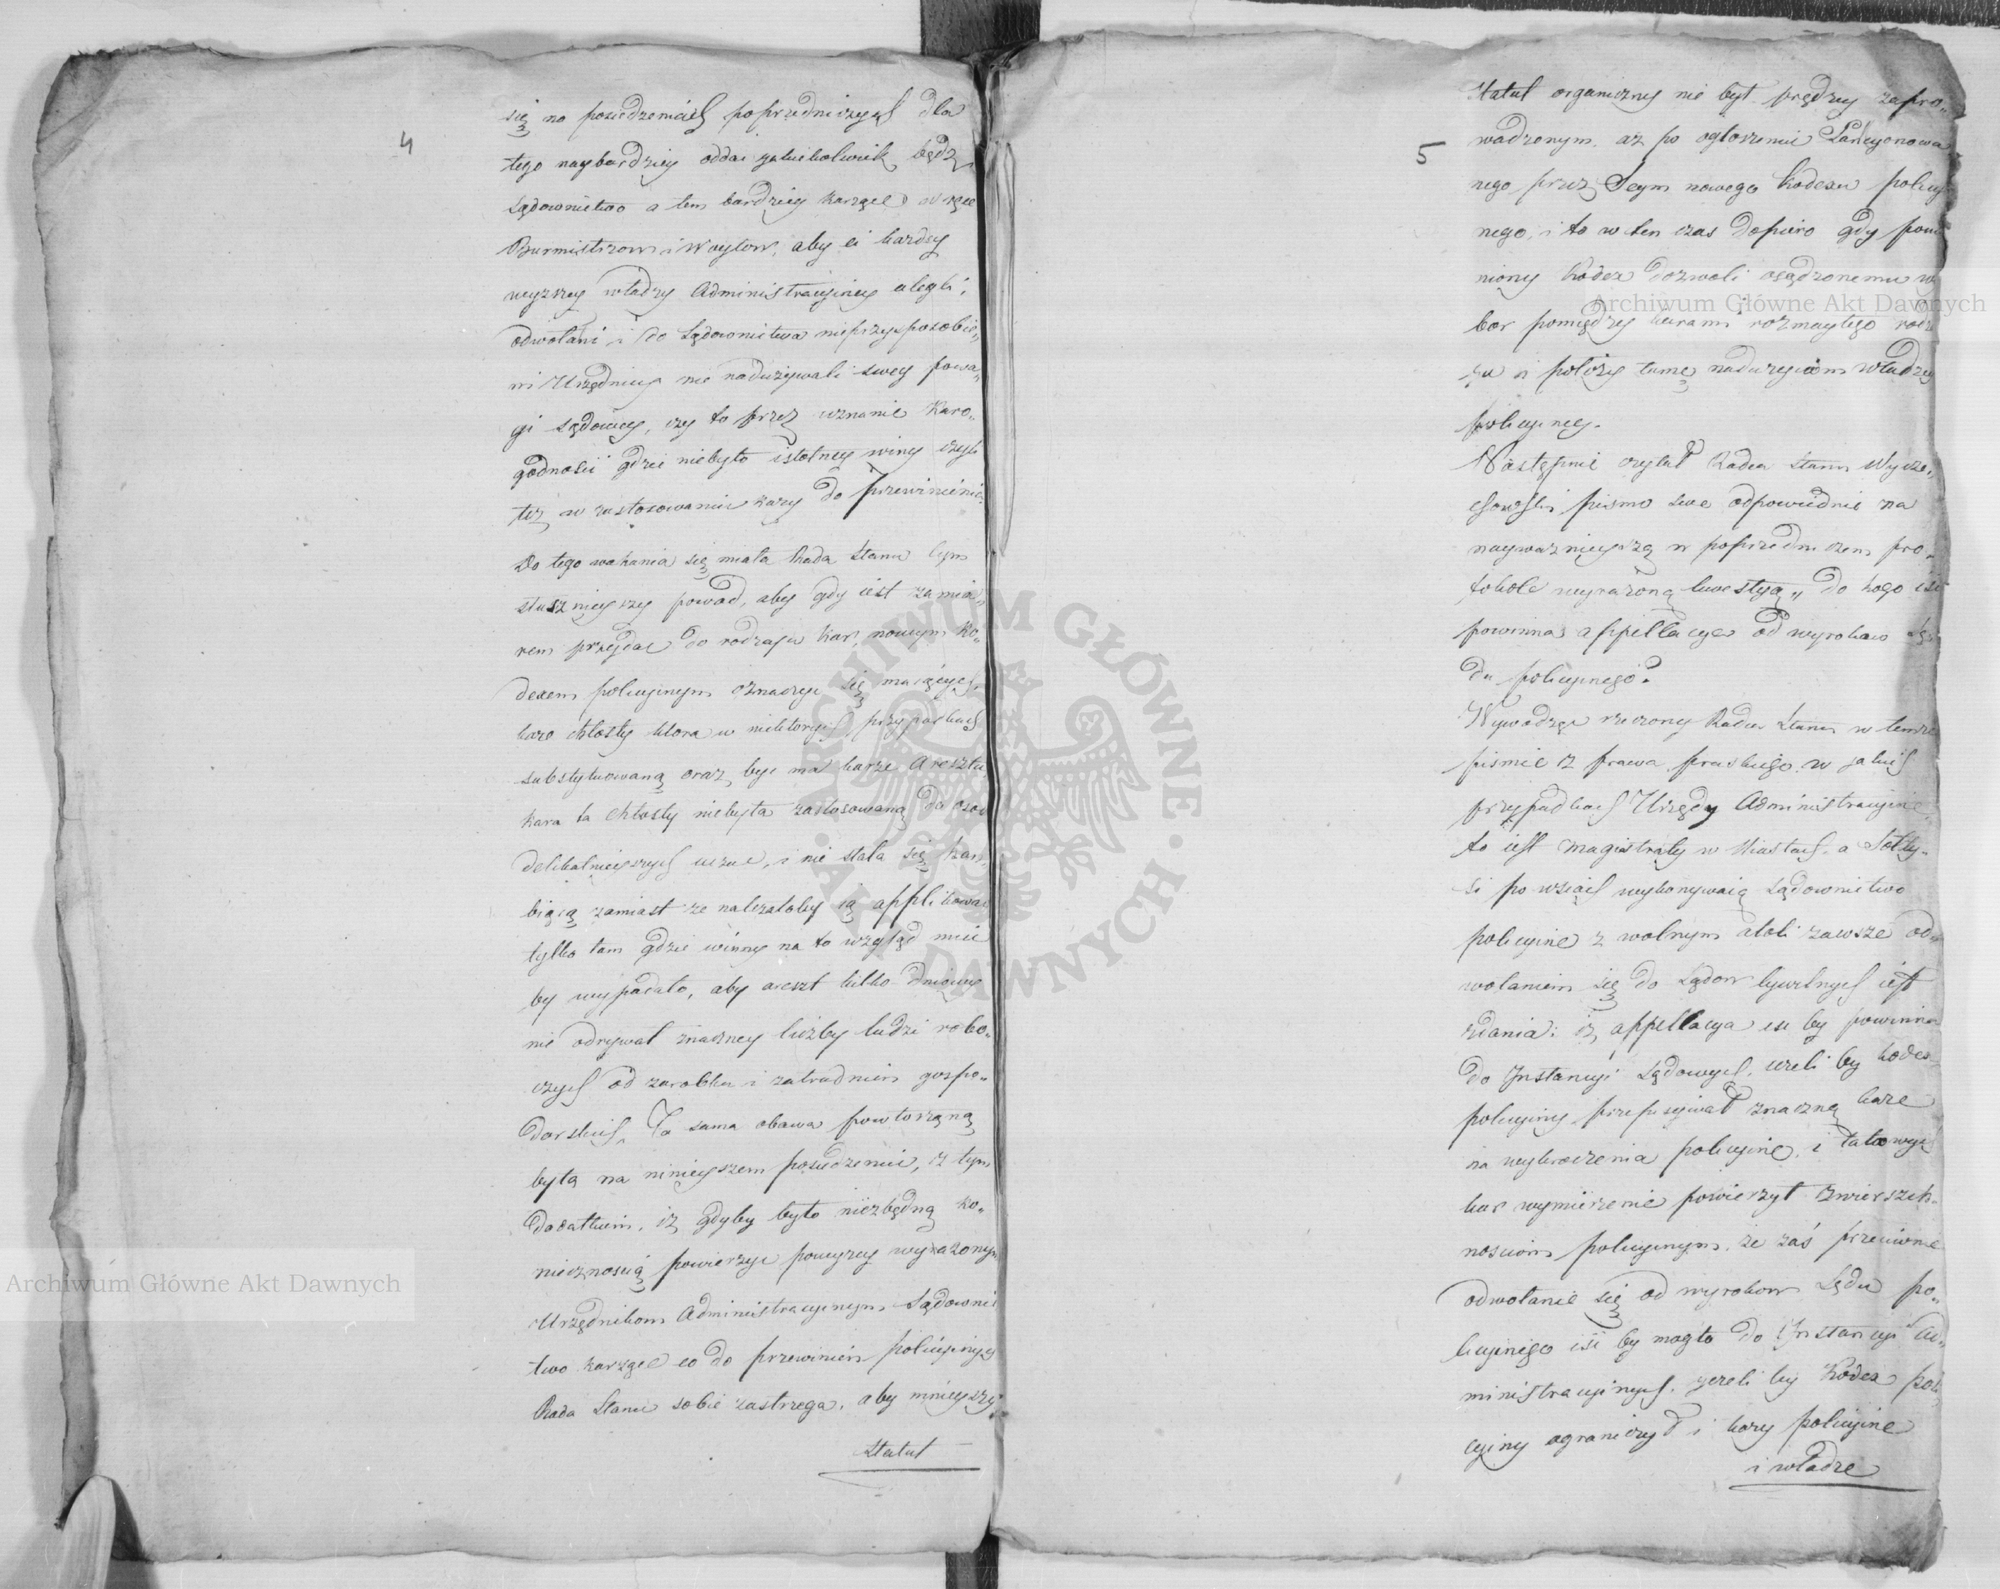 4
się na posiedzeniach poprzedniczych dla
tego naybardziey oddać jakiekolwiek bądź
Sądownictwo a tem bardziey karzące w ręce
Burmistrzow i Woytow, aby ci bardzey
wyższey władzy Administracyiney ulegli,
odwołani i do Sądownictwa nieprzysposobie„
ni Urzędnicy nie nadużywali swey powa„
gi sądowey, czy to przez uznanie karo„
godności gdzie niebyło istotney winy czyli
też w zastosowaniu kary do przewinienia.
Do tego wahania się miała Rada Stanu tym
słusznieyszy powod, aby gdy iest zamia„
rem przydać do rodzaju kar nowym Ko„
dexem policyinym oznaczyć się maiących
karo chłosty ktora w niektorych przypadkach
substytuowaną oraz być ma karze Aresztu
kara ta chłosty niebyła zastosowaną do osob
delikatnieyszych uczuć, i nie stała się hań„
biącą zamiast że należałoby ią applikować
tylko tam gdzie winny na to wzgląd mieć
by wypadało, aby areszt kilko dniowy
nie odrywał znaczney liczby ludzi robo„
czych od zarobku i zatrudnień gospo„
darskich. Ta sama obawa powtorzoną
była na ninieyszem posiedzeniu, z tym
dodatkiem, iż gdyby było niezbędną ko„
niecznością powierzyć powyżey wyrażonym
Urzędnikom Administracyinym Sądownic
two karzące co do przewinień policyinych
Rada Stanu sobie zastrzega, aby ninieyszy
Statut
5
Statut organiczny nie był prędzey zapro„
wadzonym, aż po ogłoszeniu Sankcyonowa
nego przez Seym nowego Kodexu policy
nego, i to w ten czas dopiero gdy pomie
niony Kodex dozwoli osądzonemu wy
bor pomiędzy karami rozmaytego rodza
ju i położy tamę nadużyciom władzy
policyiney.
Następnie czytał Radca Stanu Wycze„
chowski pismo swe odpowiednie na
naywaznieyszą w poprzedniczem pro„
tokole wyrażoną kwestyą„ do kogo iść
powinna appellacya od wyrokow Są
du policyinego?
Wywodząc rzeczony Radca Stanu w temże
piśmie z prawa pruskiego w jakich
przypadkach Urzędy Administracyine
to iest Magistraty w Miastach, a Sołty„
si po wsiach wykonywaią Sądownictwo
policyine z wolnym atoli zawsze od„
wołaniem się do Sądow Cywilnych iest
zdania: iż appellacya iść by powinna
do Instancyi Sądowych, ieżeli by Kodex
policyiny przepisywał znaczną karę
na wykroczenia policyine, i takowych
kar wymierzenie powierzył zwierzch„
nościom policyinym, że zaś przeciwnie
odwołanie się od wyrokow Sądu po„
licyinego iść by mogło do Instancyi Ad„
ministracyinych, jeżeli by Kodex poli
cyiny ograniczył i kary policyine
i władze
Archiwum Główne Akt Dawnych
Archiwum Główne Akt Dawnych
ARCHIWUM GŁÓWNE AKT DAWNYCH